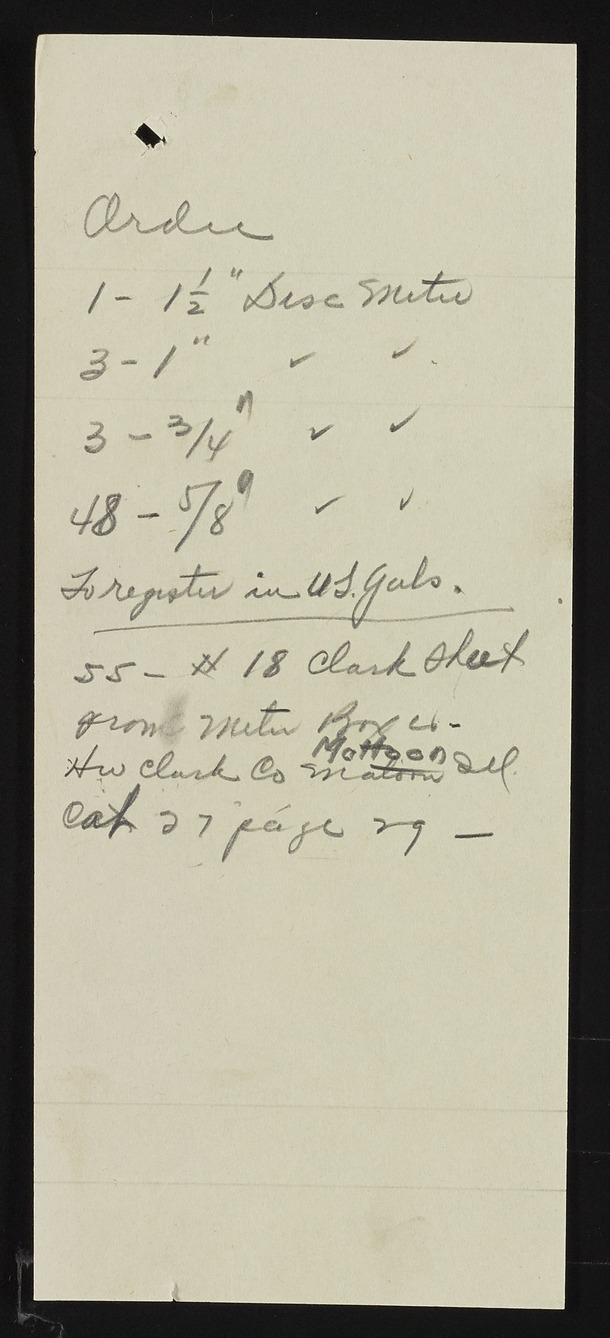 Order
1 - 1 1/2" Disc Meter
3 - 1" ✓ ✓
3 - 3/4" ✓ ✓
48 - 5/8" ✓ ✓
To register in U.S. Gals.
55 - # 18 Clark Sheet
Iron Meter Box
HW Clark Co Mattoon Ill.
Cat 27 page 29 —